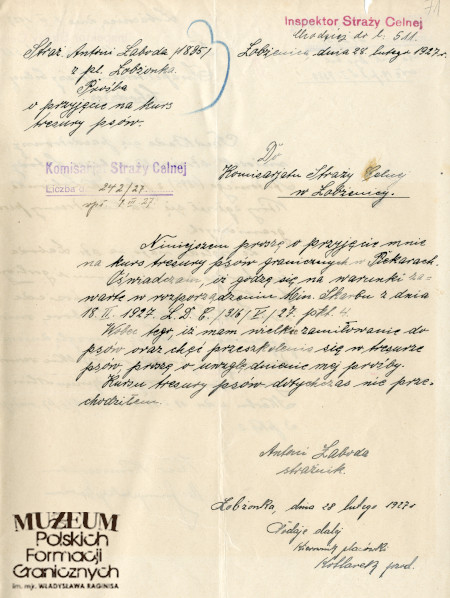 71
Inspektor Straży Celnej
Urodzić do l. 511.
Straż. Antoni Łaboda /1895/
z pl. Lobżonka.
Prośba
o przyjęcie na kurs
tresury psów.
3
Łobżenica dnia 28. lutego 1927. r.
Komisarjat Straży Celnej
Liczba dz. 242/27.
Do
Komisarjatu Straży Celnej
w Łobżenicy.
Niniejszem proszę o przyjęcie mnie
na kurs tresury psów granicznych w Piekarach.
Oświadczam, iż godzę się na warunki za-
warte w rozporządzeniu Min. Skarbu z dnia
18. II. 1927. L. D. C. /34/ V/27. pkt. 4.
Wobec tego, iż mam wielkie zamiłowanie do
psów oraz chęć przeszkolenia się w tresurze
psów, proszę o uwzględnienie mej prośby.
Kursu tresury psów dotychczas nie prze-
chodziłem.
Antoni Łaboda
strażnik.
Łobżonka, dnia 28 lutego 1927 r.
Podaje dalej
Kierownik placówki
MUZEUM
Polskich
Formacji
Granicznych
im. mjr. WŁADYSŁAWA RAGINISA